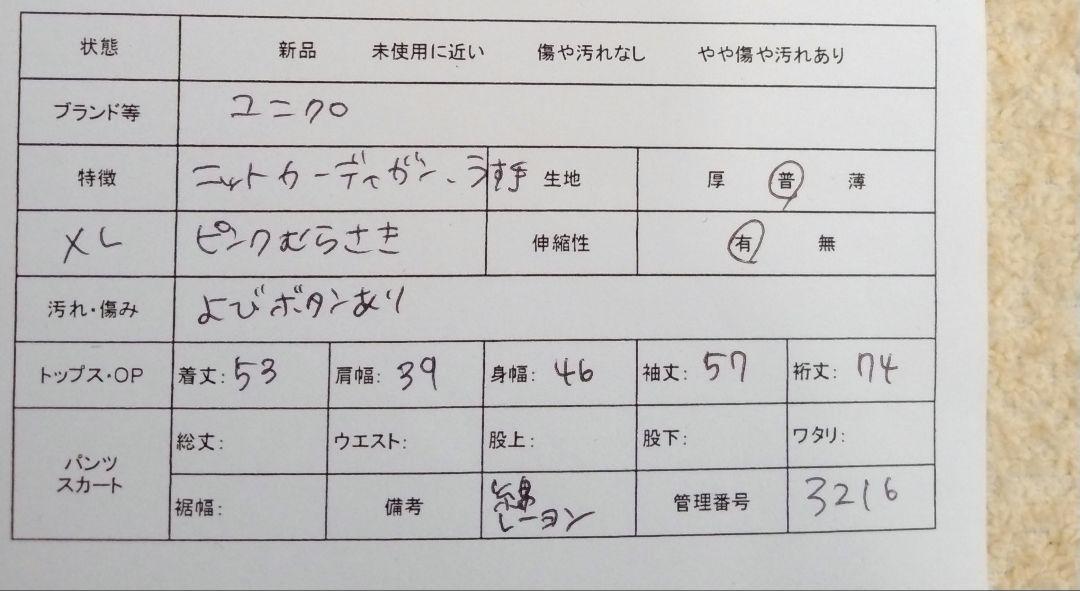 状態 新品 未使用に近い 傷や汚れなし やや傷や汚れあり
ブランド等 ユニクロ
特徴 ニットカーディガン、うす手 生地 厚 普 薄
XL ピンクむらさき 伸縮性 有 無
汚れ・傷み よびボタンあり
トップス・OP 着丈: 53 肩幅: 39 身幅: 46 袖丈: 57 裄丈: 74
パンツ
スカート
総丈: ウエスト: 股上: 股下: ワタリ:
裾幅: 備考 綿
レーヨン
管理番号 3216